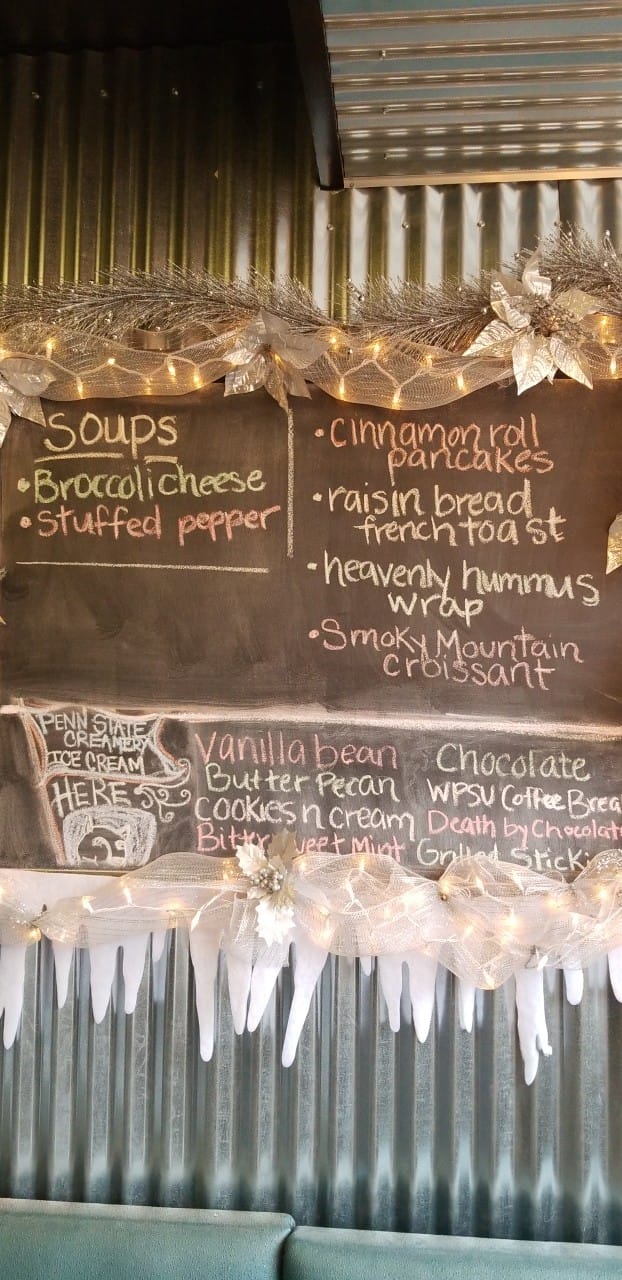 Soups
• Broccoli cheese
• stuffed pepper
• cinnamon roll
pancakes
• raisin bread
french toast
• heavenly hummus
wrap
• Smoky Mountain
croissant
PENN STATE
CREAMERY
ICE CREAM
HERE
Vanilla bean
Butter Pecan
cookies n cream
Mint
Chocolate
WPSU Coffee
Death by
Grilled